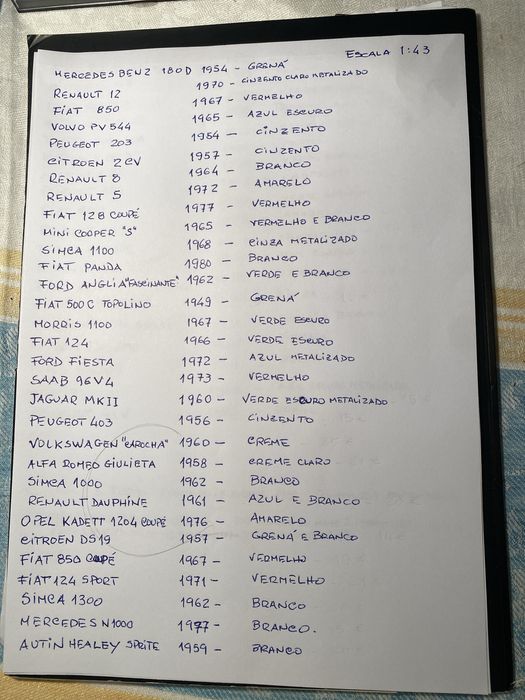 ESCALA 1:43
MERCEDES BENZ 180D 1954 - GRENÁ
RENAULT 12 1970 - CINZENTO CLARO METALIZADO
FIAT 850 1967 - VERMELHO
VOLVO PV544 1965 - AZUL ESCURO
PEUGEOT 203 1954 - CINZENTO
CITROEN 2CV 1957 - CINZENTO
RENAULT 8 1964 - BRANCO
RENAULT 5 1972 - AMARELO
FIAT 128 COUPÉ 1977 - VERMELHO
MINI COOPER "S" 1965 - VERMELHO E BRANCO
SIMCA 1100 1968 - CINZA METALIZADO
FIAT PANDA 1980 - BRANCO
FORD ANGLIA "FASCINANTE" 1962 - VERDE E BRANCO
FIAT 500 C TOPOLINO 1949 - GRENÁ
MORRIS 1100 1967 - VERDE ESCURO
FIAT 124 1966 - VERDE ESCURO
FORD FIESTA 1972 - AZUL METALIZADO
SAAB 96V4 1973 - VERMELHO
JAGUAR MKII 1960 - VERDE ESCURO METALIZADO
PEUGEOT 403 1956 - CINZENTO
VOLKSWAGEN "CAROCHA" 1960 - CREME
ALFA ROMEO GIULIETA 1958 - CREME CLARO
SIMCA 1000 1962 - BRANCO
RENAULT DAUPHINE 1961 - AZUL E BRANCO
OPEL KADETT 1204 COUPÉ 1976 - AMARELO
CITROEN DS19 1957 - GRENÁ E BRANCO
FIAT 850 COUPÉ 1967 - VERMELHO
FIAT 124 SPORT 1971 - VERMELHO
SIMCA 1300 1962 - BRANCO
MERCEDES N1000 1977 - BRANCO.
AUTIN HEALEY SPRITE 1959 - BRANCO